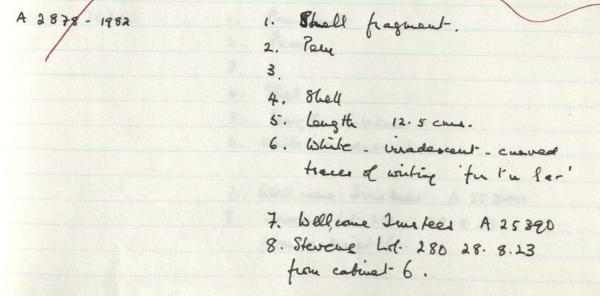 A 2878 - 1982
1. Shell fragment.
2. Peru
3.
4. Shell
5. Length 12.5 cms.
6. White - irradescent - curved
traces of writing 'for the
7. Wellcome Trustees A 25390
8. Stevens Lot. 280 28.8.23
from cabinet 6.